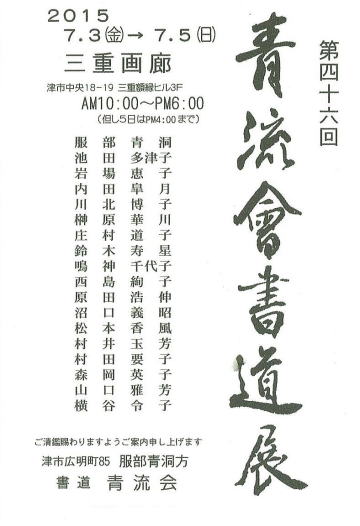 第四十六回
青流會書道展
2015
7.3㊎→7.5㊐
三重画廊
津市中央18-19 三重額縁ビル3F
AM10:00～PM6:00
(但し5日はPM4:00まで)
服部青洞
池田多津子
岩場恵子
内田皐月
川北博子
榊原華川
庄村道子
鈴木寿星
鳴神千代子
西島絢子
原田浩伸
沼口義昭
松本香風
村井玉芳
村田要子
森岡英子
山口雅芳
横谷令子
ご清鑑賜わりますようご案内申し上げます
津市広明町85 服部青洞方
書道 青流会